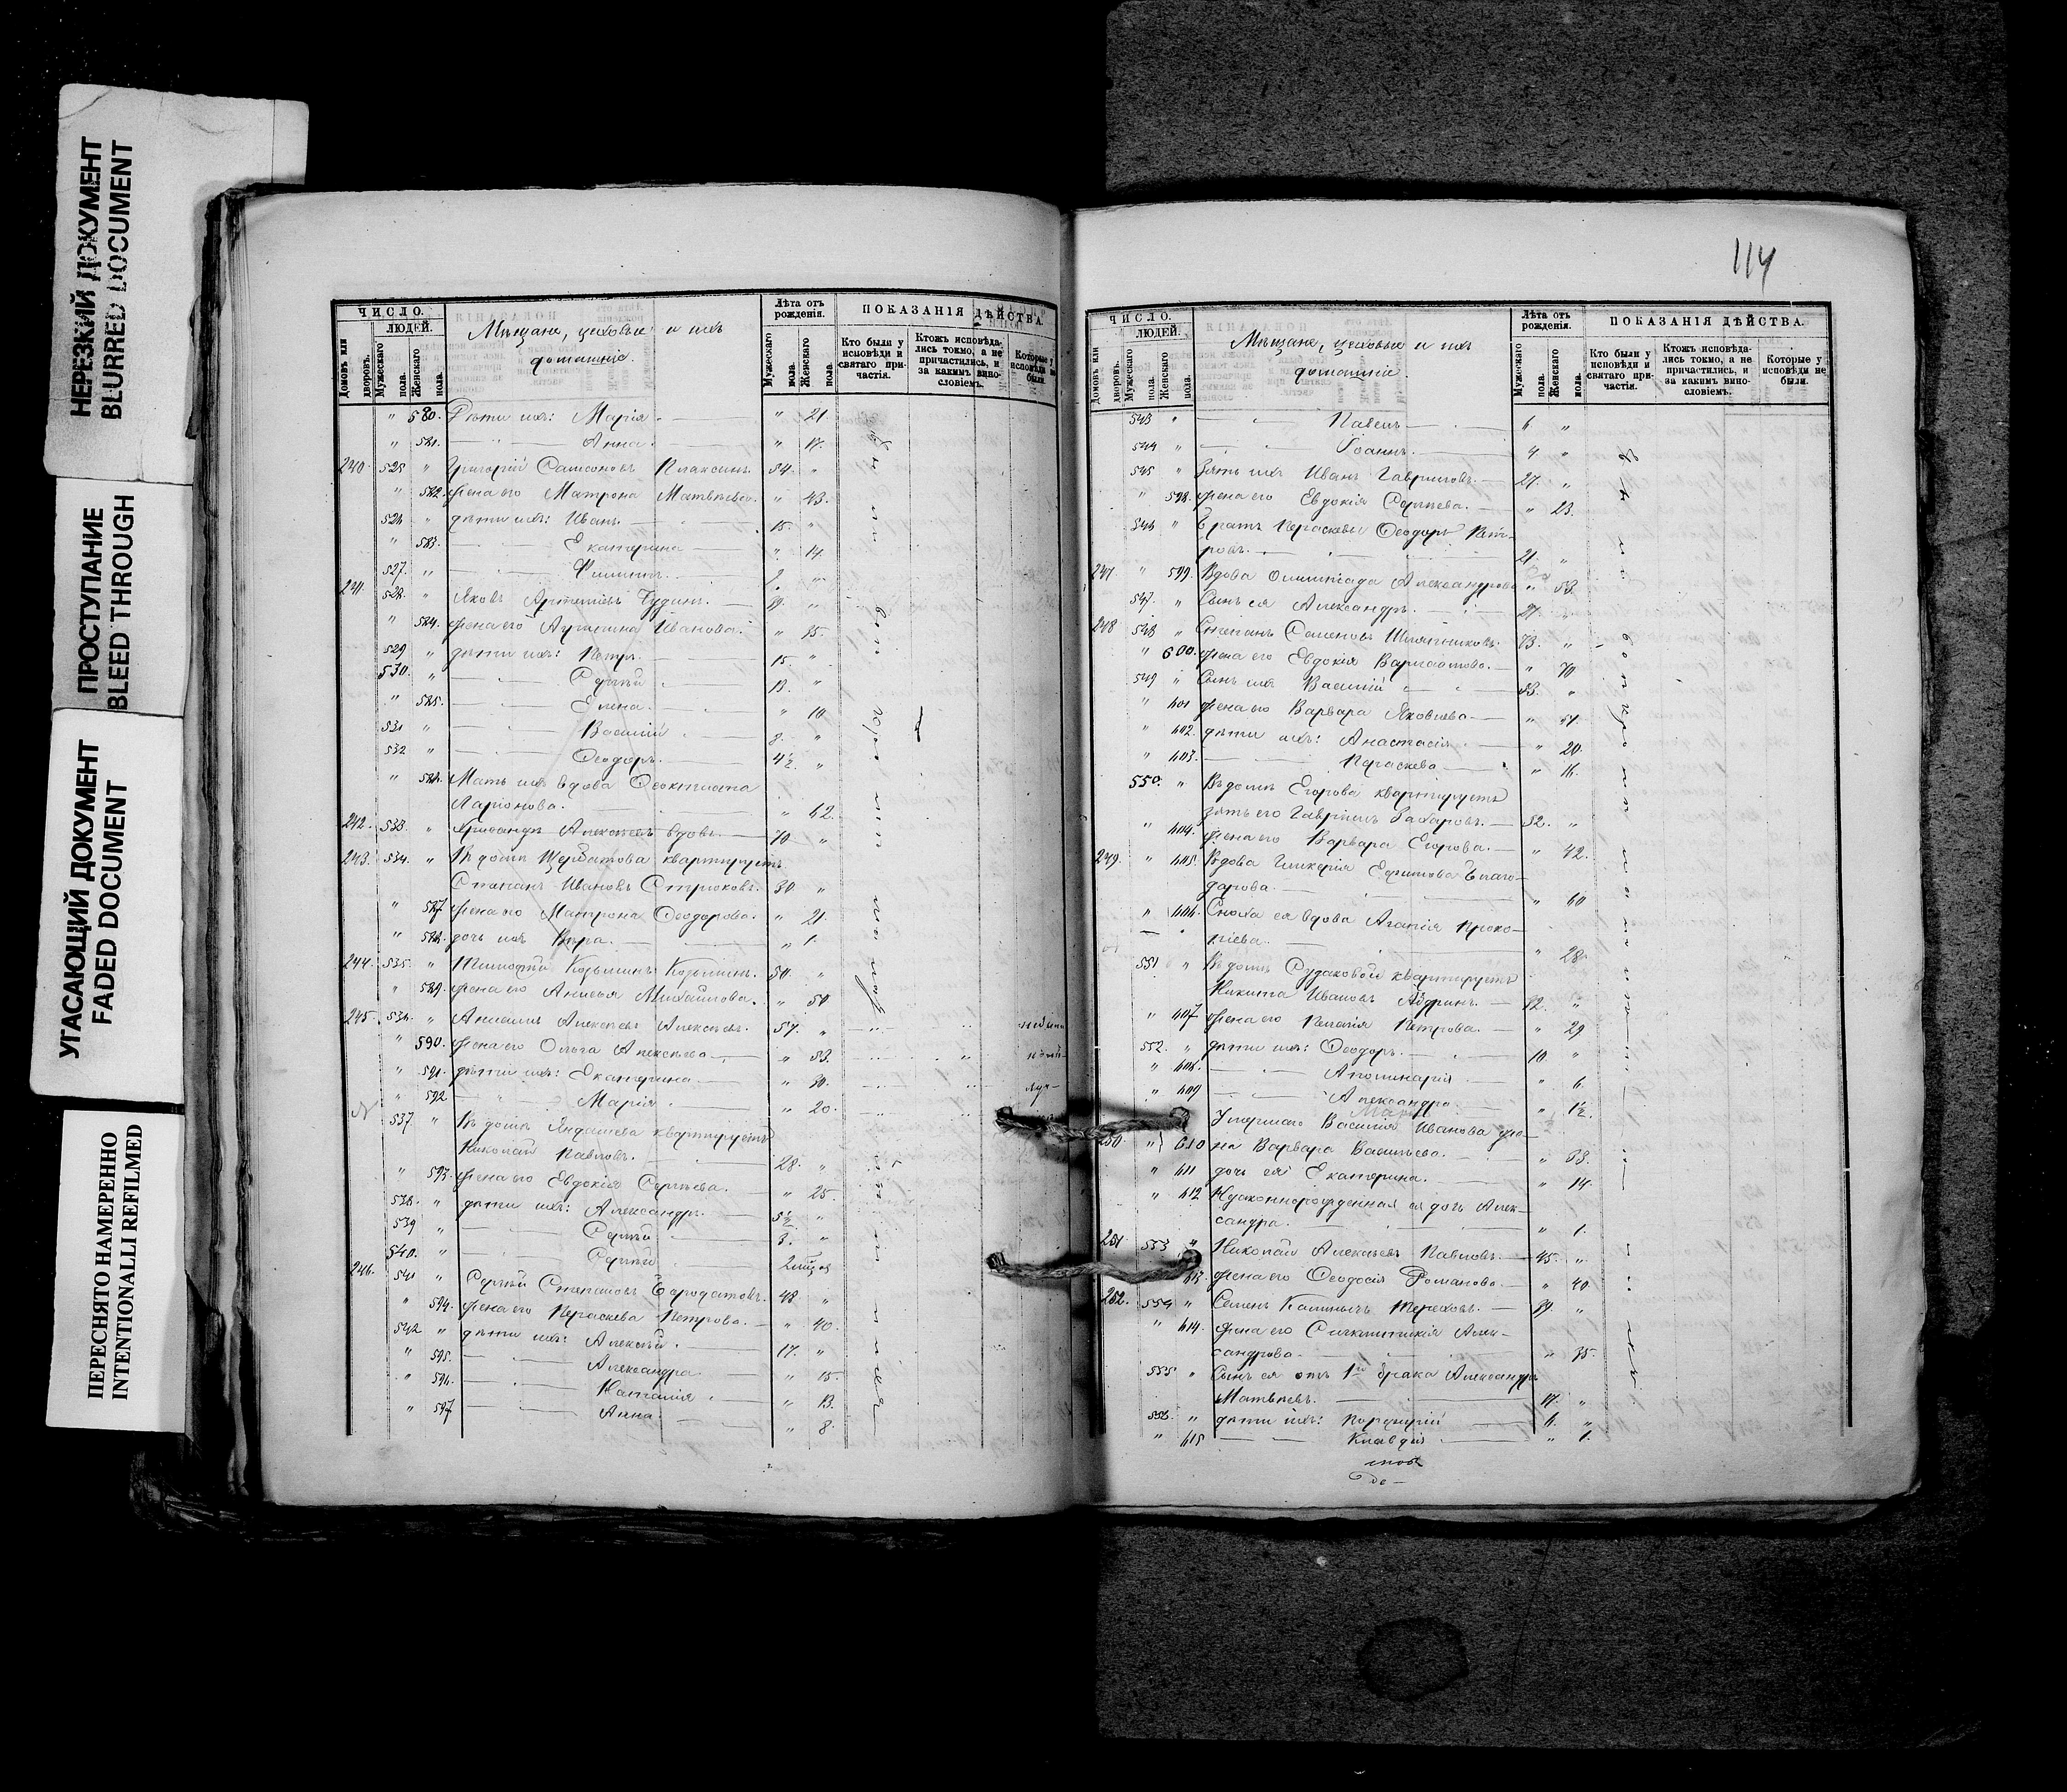 НЕРЕЗКИЙ ДОКУМЕНТ
BLURRED DOCUMENT
ПРОСТУПАНИЕ
BLEED THROUGH
УГАСАЮЩИЙ ДОКУМЕНТ
FADED DOCUMENT
ПЕРЕСНЯТО НАМЕРЕННО
INTENTIONALLI REFILMED
ЧИСЛО.
ЛЮДЕЙ.
Домовъ или дворовъ.
Мужескаго пола.
Женскаго пола.
Мѣщане, цеховые и ихъ
домашніе.
Лѣта отъ рожденія.
Мужескаго пола.
Женскаго пола.
ПОКАЗАНІЯ ДѢЙСТВА.
Кто были у исповѣди и святаго причастія.
Ктожъ исповѣдались токмо, а не причастились, и за какимъ винословіемъ.
Которые у исповѣди не были.
" 580. Дѣти ихъ: Марія " 21.
" 581. Анна " 17.
240. 525 " Григорій Самсоновъ Плаксинъ. 54. "
" 582. Жена его Матрона Матвѣева. " 43.
526 " дѣти ихъ: Иванъ 15. "
" 583. Екатерина " 14.
527. " Филиппъ
241. 528. " Яковъ Артемьевъ Чудинъ. 39. "
" 584. Жена его Агрипина Иванова. " 35.
529 " дѣти ихъ: Петръ 15. "
530. " Сергѣй 13. "
" 585. Елена " 10
531 " Василій 8. "
532 " Ѳеодоръ 4½ "
" 586. Мать ихъ вдова Ѳеоктиста
Ларіонова. " 62.
242. 533. " Хрисанфъ Алексѣевъ вдовъ. 70 "
243. 534. " Въ домѣ Щербатова квартируетъ
Степанъ Ивановъ Стрюковъ. 30. "
" 587 Жена его Матрона Ѳеодорова. " 21.
" 588. дочь ихъ Вѣра. " 1.
244. 535. " Тимофей Козьминъ Козьминъ. 50. "
" 589. Жена его Анисья Михайлова. " 50
245. 536. " Алексѣевъ Алексѣевъ. 57. "
" 590. Жена его Ольга Алексѣева " 53.
" 591. дѣти ихъ: Екатерина " 30.
" 592 Марія " 20.
537 " Въ домѣ квартируетъ
Николай Павловъ. 28. "
" 593. Жена его Евдокія Сергѣева. " 25.
538. " дѣти ихъ: Александръ. 5½ "
539 " Сергѣй 3. "
540. " Сергѣй
246. 541 " Сергѣй Степановъ Бородатовъ. 48 "
" 594. Жена его Пераскева Петрова. " 40.
542 " дѣти ихъ: Алексѣй. 17. "
" 595. Александра " 15.
" 596. Наталія " 13.
" 597 Анна " 8.
114
ЧИСЛО.
ЛЮДЕЙ.
Домовъ или дворовъ.
Мужескаго пола.
Женскаго пола.
Мѣщане, цеховые и ихъ
домашніе.
Лѣта отъ рожденія.
Мужескаго пола.
Женскаго пола.
ПОКАЗАНІЯ ДѢЙСТВА.
Кто были у исповѣди и святаго причастія.
Ктожъ исповѣдались токмо, а не причастились, и за какимъ винословіемъ.
Которые у исповѣди не были.
543 " Павелъ 6 "
544 " Іоаннъ. 4 "
545 " Зять ихъ Иванъ Гавриловъ. 27. "
" 598. Жена его Евдокія Сергѣева. " 23.
546 " Братъ Пераскевы Ѳеодоръ Пет-
ровъ. 21. "
247 " 599. Вдова Олимпіада Александрова " 53.
547. " Сынъ ея Александръ. 21. "
248 548 " Степанъ Семеновъ Шляпниковъ. 73. "
" 600. Жена его Евдокія Варламова. " 70
549 " Сынъ ихъ Василій 53. "
" 601 Жена его Варвара Яковлева " 51.
" 602. дѣти ихъ: Анастасія " 20.
" 603. Пераскева " 16.
550. " Въ домѣ Егорова квартируетъ
зять его Гавріилъ Захаровъ. 52. "
" 604. Жена его Варвара Егорова. " 42.
249. " 605. Вдова Гликерія Ефимова Благо-
дарова. " 60
" 606. Сноха ея вдова Агапія Проко-
піева. " 28.
551 " Въ домѣ Судаковой квартируетъ
Никита Ивановъ 32. "
" 607 Жена его Пелагія Петрова. " 29
552. " дѣти ихъ: Ѳеодоръ. 10 "
" 608. Аполинарія " 6.
" 609 Александра. " 1½
Умершаго Василія Иванова же-
250. " 610 на Варвара Васильева. " 33.
" 611 дочь ея Екатерина. " 14.
" 612 Незаконнорожденная ея дочь Алек-
сандра. " 1.
251 553 " Николай Алексѣевъ Павловъ. 45. "
613. Жена его Ѳеодосія Романова " 40.
252. 554 " Семенъ Калинычъ Тереховъ. 39. "
" 614. Жена его Синклитикія Алек-
сандрова. " 35.
555 " Сынъ ея отъ 1го брака Александръ
Матвѣевъ. 17. "
556. " дѣти ихъ: Порфирій 6. "
" 615 Клавдія " 1.